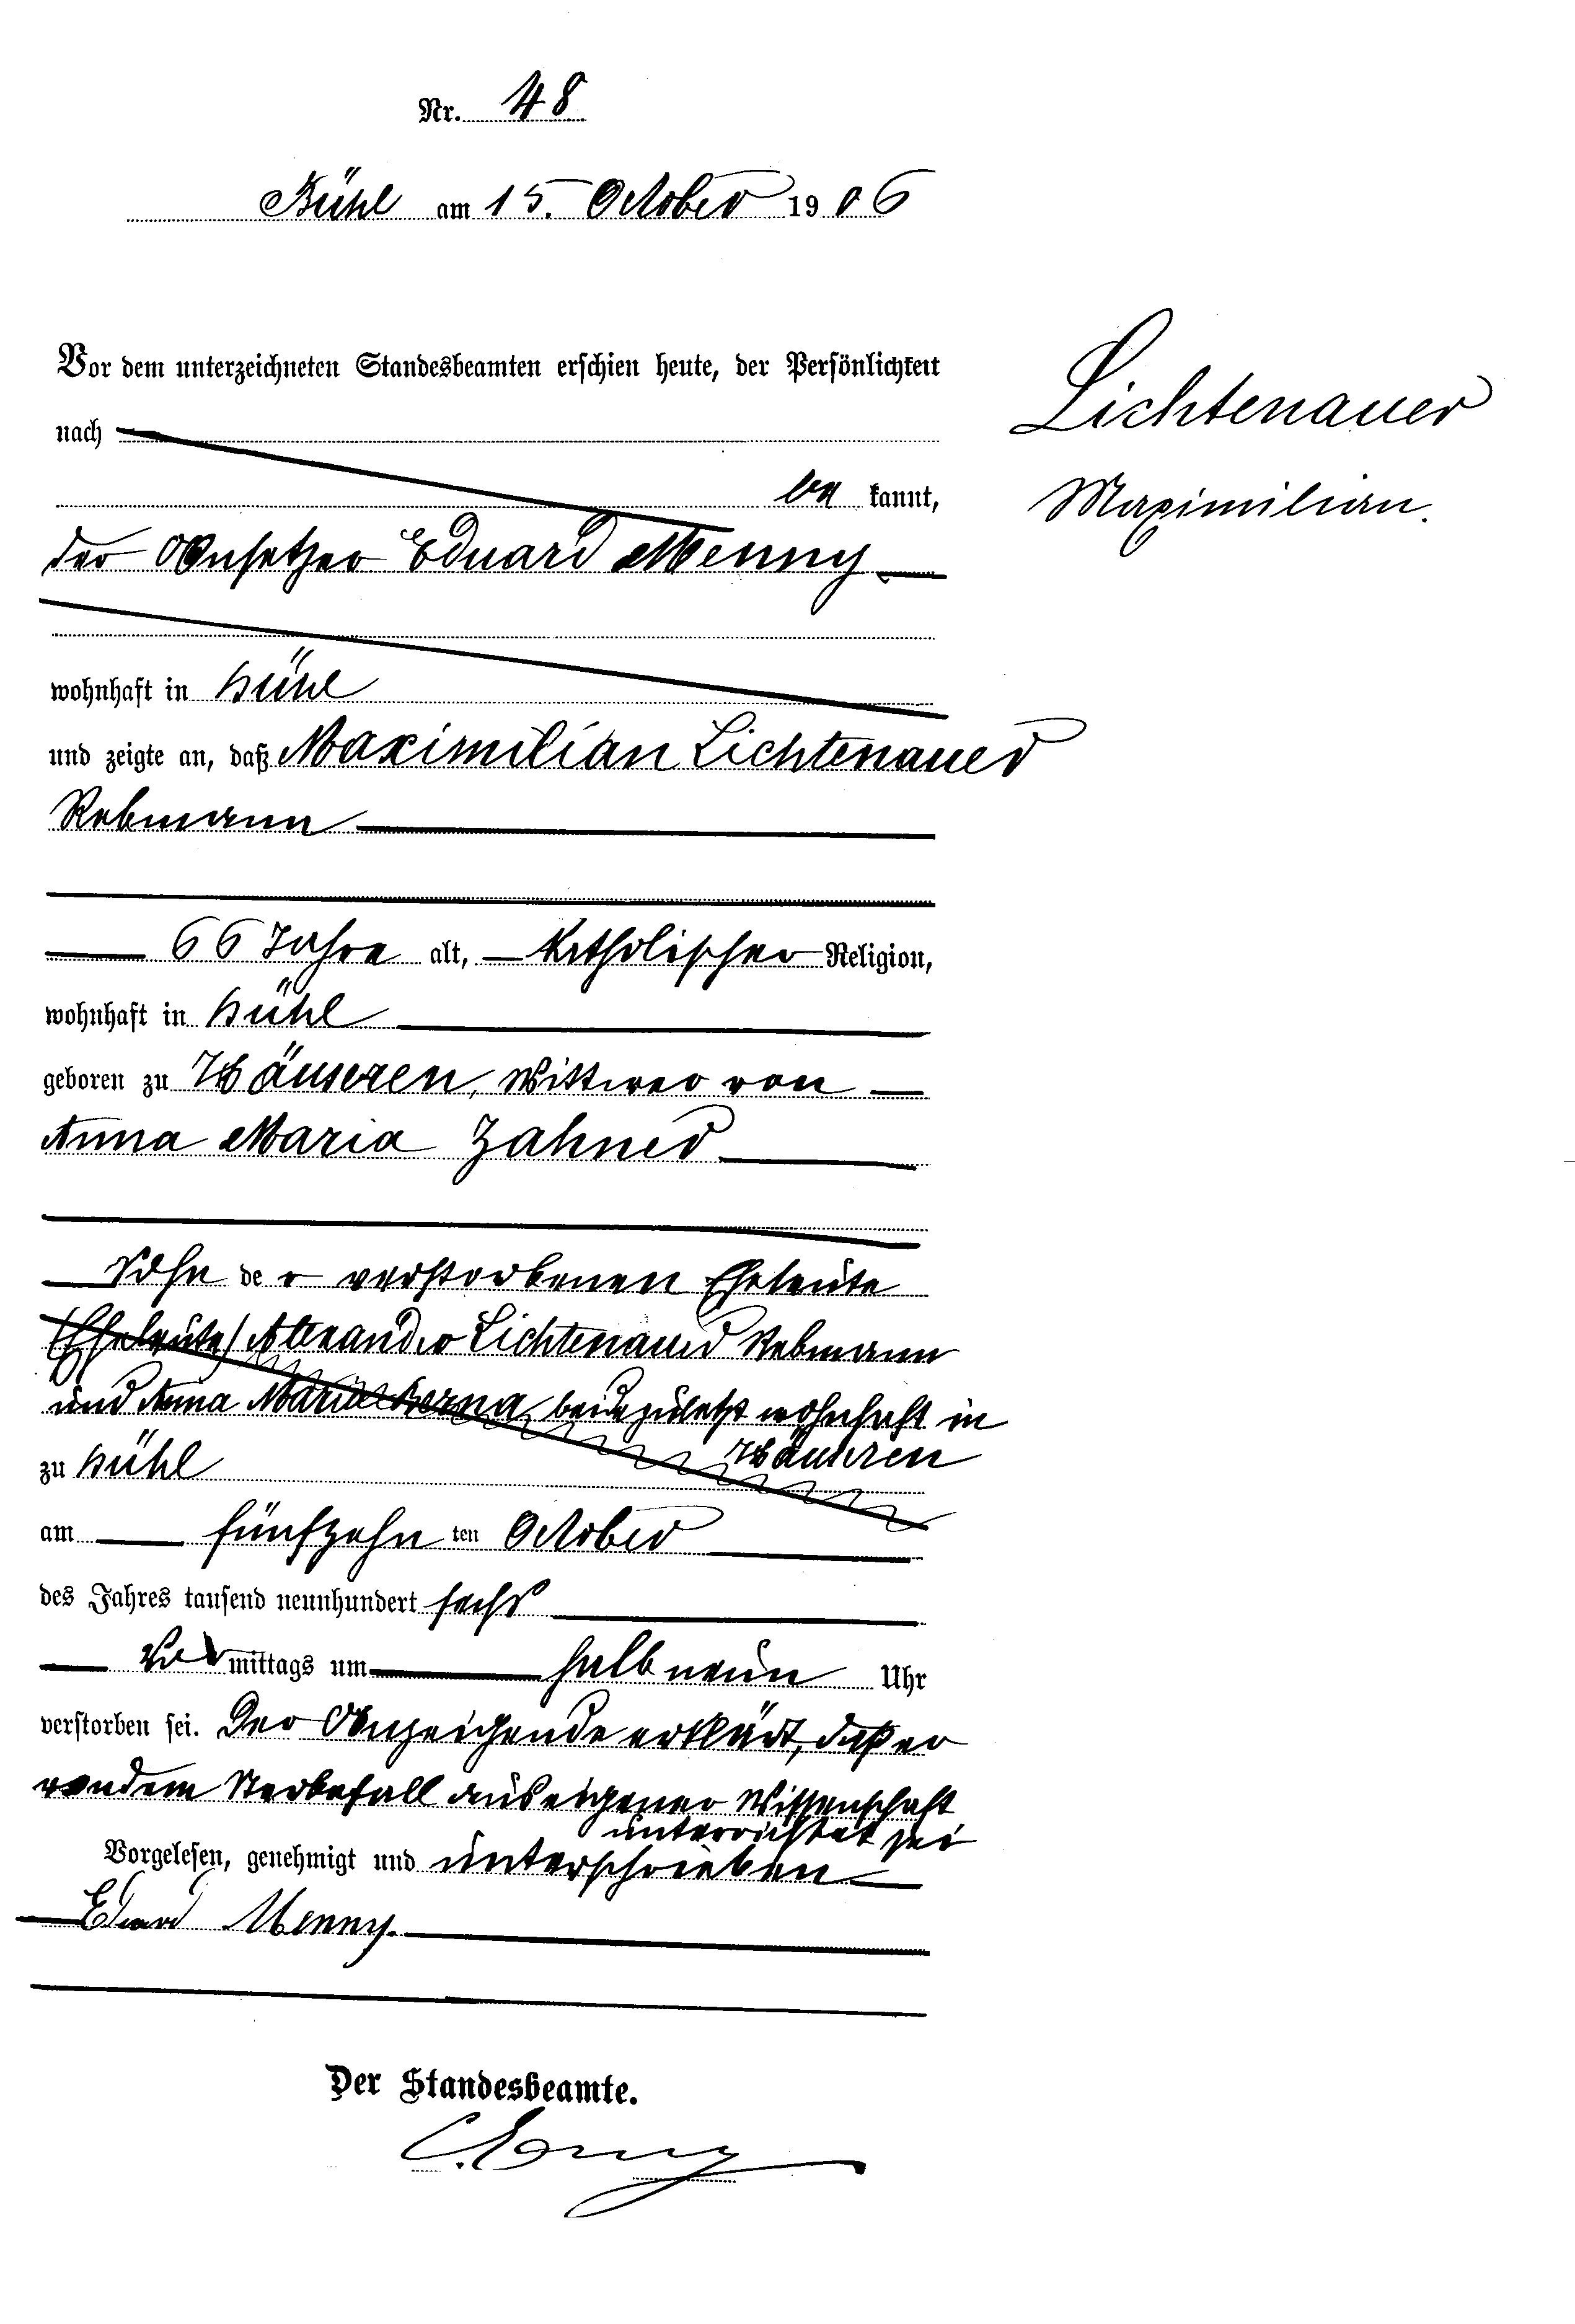 Nr. 48
Bühl am 15. October 1906
Vor dem unterzeichneten Standesbeamten erschien heute, der Persönlichkeit
Lichtenauer
nach
Maximilian.
be kannt,
der Ansetzer Eduard Menny
wohnhaft in Bühl
und zeigte an, daß Maximilian Lichtenauer
Rebmann
66 Jahre alt, Katholischer Religion,
wohnhaft in Bühl
geboren zu Häuseren, Wittwer von
Anna Maria Zahner
Sohn der verstorbenen Eheleute
(Eheleute) Alexander Lichtenauer Rebmann
und Anna Maria beide zuletzt wohnhaft in
Häuseren
zu Bühl
am fünfzehn ten October
des Jahres tausend neunhundert sechs
Vor mittags um halb neun Uhr
verstorben sei. Der Anzeigende erklärt, daß er
von dem Sterbefall aus eigener Wissenschaft
unterrichtet sei
Vorgelesen, genehmigt und unterschrieben
Eduard Menny.
Der Standesbeamte.